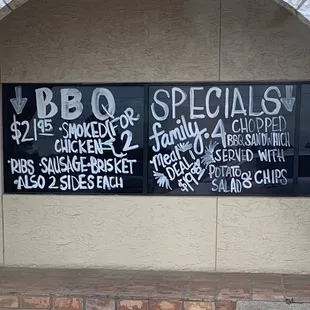 BBQ
$21.95 · SMOKED (FOR 2
CHICKEN
·RIBS· SAUSAGE·BRISKET
·ALSO 2 SIDES EACH
SPECIALS
family
MEAL
DEAL
4 CHOPPED
BBQ SANDWICH
SERVED WITH
POTATO
SALAD & CHIPS